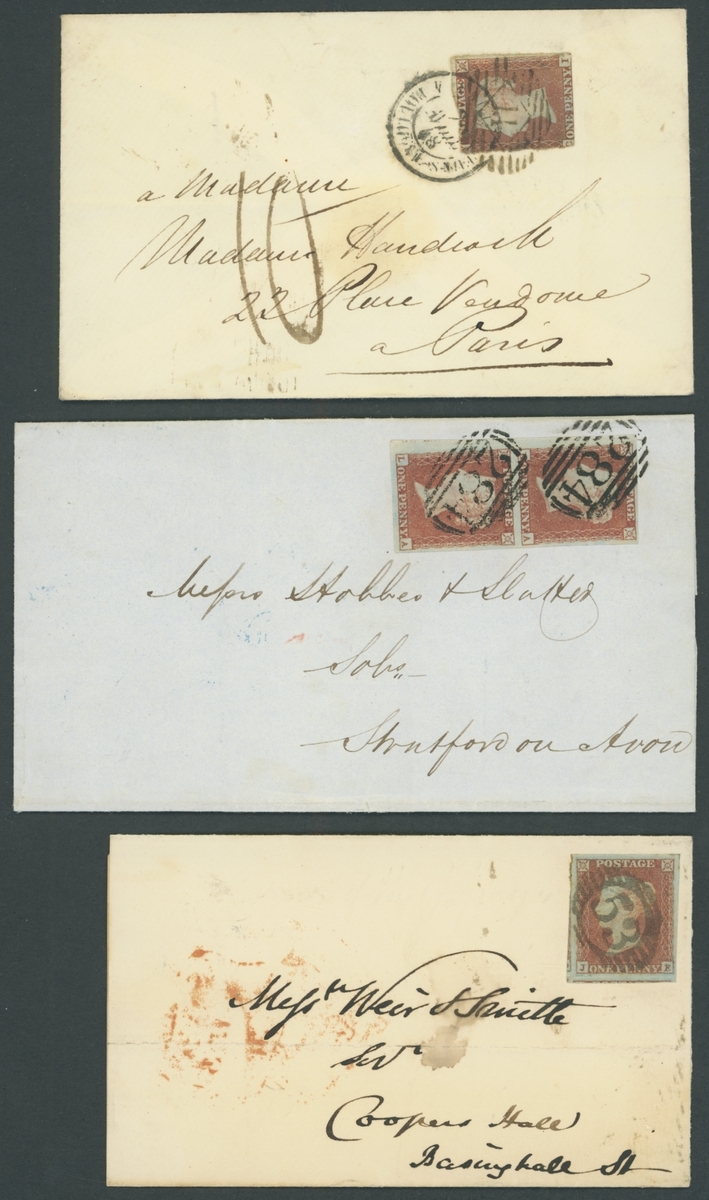 POSTAGE
ONE PENNY
I
a Madame
Madame Handcock
22 Place Vendome
a Paris
10
284
284
ONE PENNY
L A
A
Messrs Hobbes & Slatter
Sobs
Stratford on Avon
POSTAGE
53
J ONE PENNY E
Messrs Weir & Smith
Solrs
Coopers Hall
Basinghall St